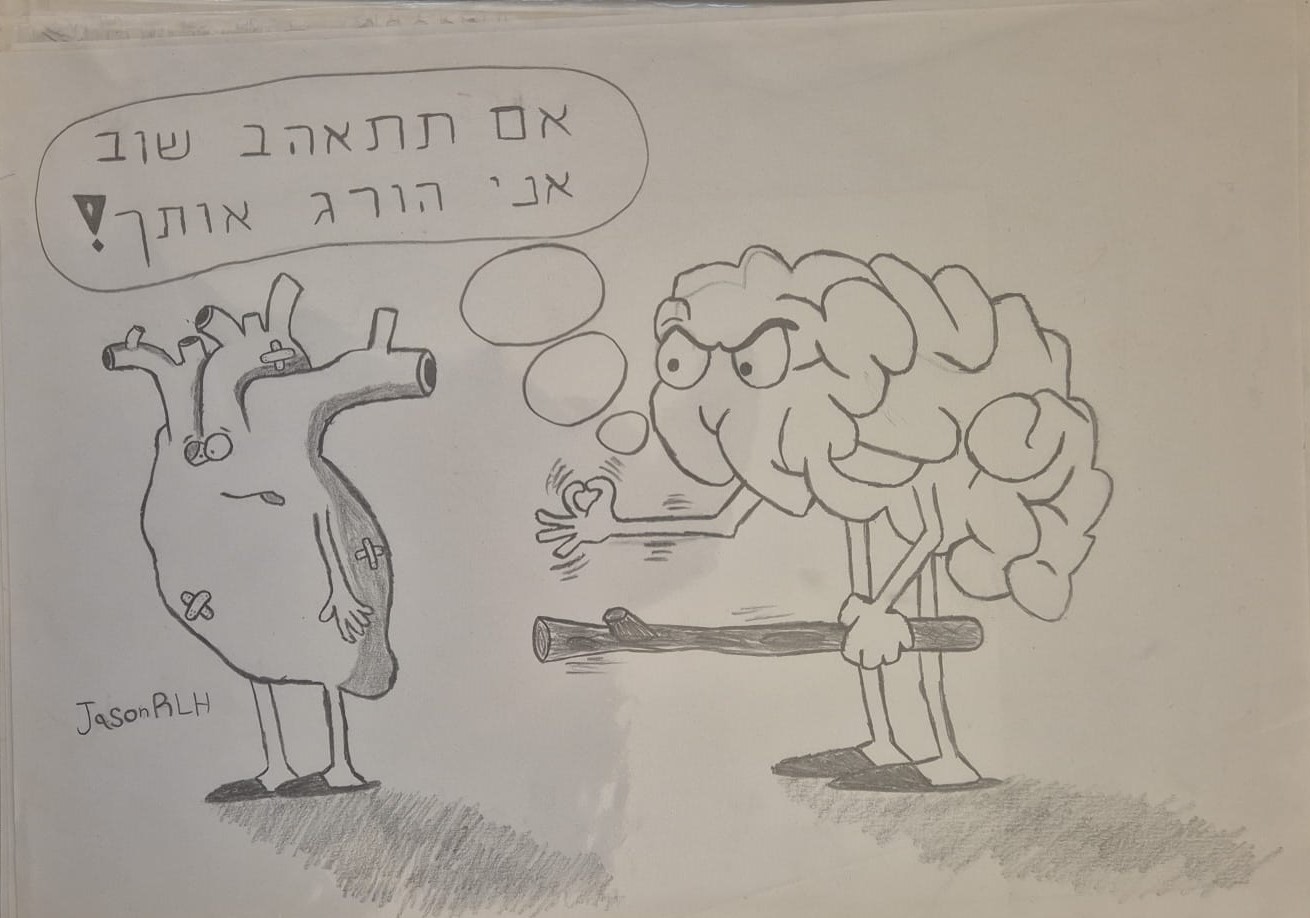 אם תתאהב שוב
אני הורג אותך!
JasonRLH